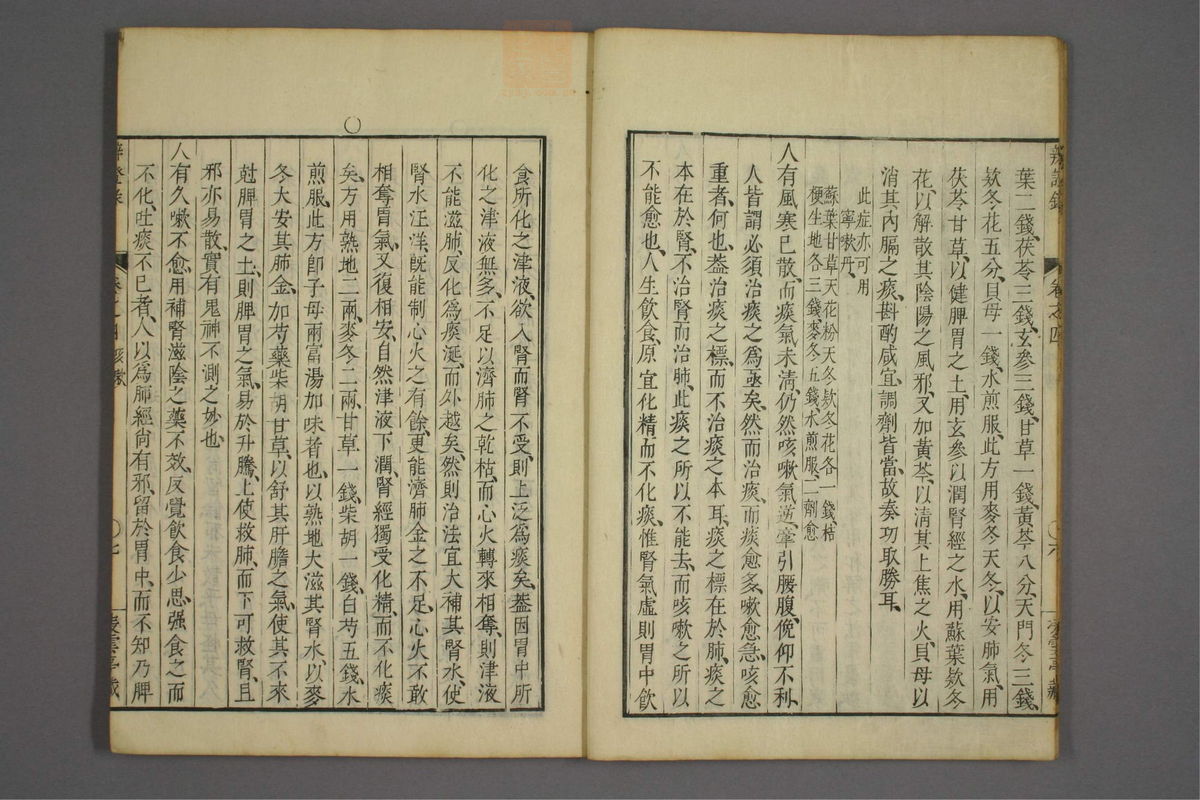 葉二錢、茯苓三錢、玄參三錢、甘草一錢、黃芩八分、天門冬三錢、
欵冬花五分、貝母一錢、水煎服、此方用麥冬天冬、以安肺氣、用
茯苓甘草、以健脾胃之土、用玄參以潤腎經之水、用蘇葉欵冬
花、以解散其陰陽之風邪、又加黃芩、以清其上焦之火、貝母以
消其內膈之痰、斟酌咸宜、調劑皆當、故奏功取勝耳、
此症亦可用
寧嗽丹、
蘇葉甘草天花粉天冬欵冬花各一錢桔
梗生地各三錢、麥冬五錢、水煎服、二劑愈
人有風寒已散、而痰氣未清、仍然咳嗽氣逆、牽引腰腹、俛仰不利、
人皆謂必須治痰之爲亟矣、然而治痰、而痰愈多、嗽愈急、咳愈
重者、何也、葢治痰之標、而不治痰之本耳、痰之標在於肺、痰之
本在於腎、不治腎而治肺、此痰之所以不能去、而咳嗽之所以
不能愈也、人生飲食、原宜化精而不化痰、惟腎氣虛、則胃中飲
食所化之津液、欲入腎而腎不受、則上泛爲痰矣、葢因胃中所
化之津液無多、不足以濟肺之乾枯、而心火轉來相奪、則津液
不能滋肺、反化爲痰涎、而外越矣、然則治法宜大補其腎水、使
腎水汪洋、旣能制心火之有餘、更能濟肺金之不足、心火不敢
相奪、胃氣又復相安、自然津液下潤、腎經獨受化精、而不化痰
矣、方用熟地二兩、麥冬二兩、甘草一錢、柴胡一錢、白芍五錢、水
煎服、此方卽子母兩富湯加味者也、以熟地大滋其腎水、以麥
冬大安其肺金、加芍藥柴胡甘草、以舒其肝膽之氣、使其不來
尅脾胃之土、則脾胃之氣、易於升騰、上使救肺、而下可救腎、且
邪亦易散、實有鬼神不測之妙也、
人有久嗽不愈、用補腎滋陰之藥不效、反覺飲食少思、强食之而
不化、吐痰不已者、人以爲肺經尙有邪、留於胃中、而不知乃脾